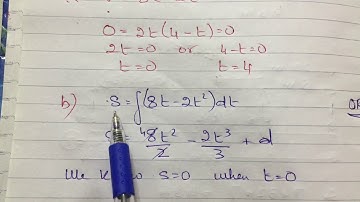 0 = 2t(4-t)=0
2t=0 or 4-t=0
t=0 t=4
b) S = ∫(8t-2t²)dt
= ⁴8t²/2 - 2t³/3 + d
We S=0 when t=0